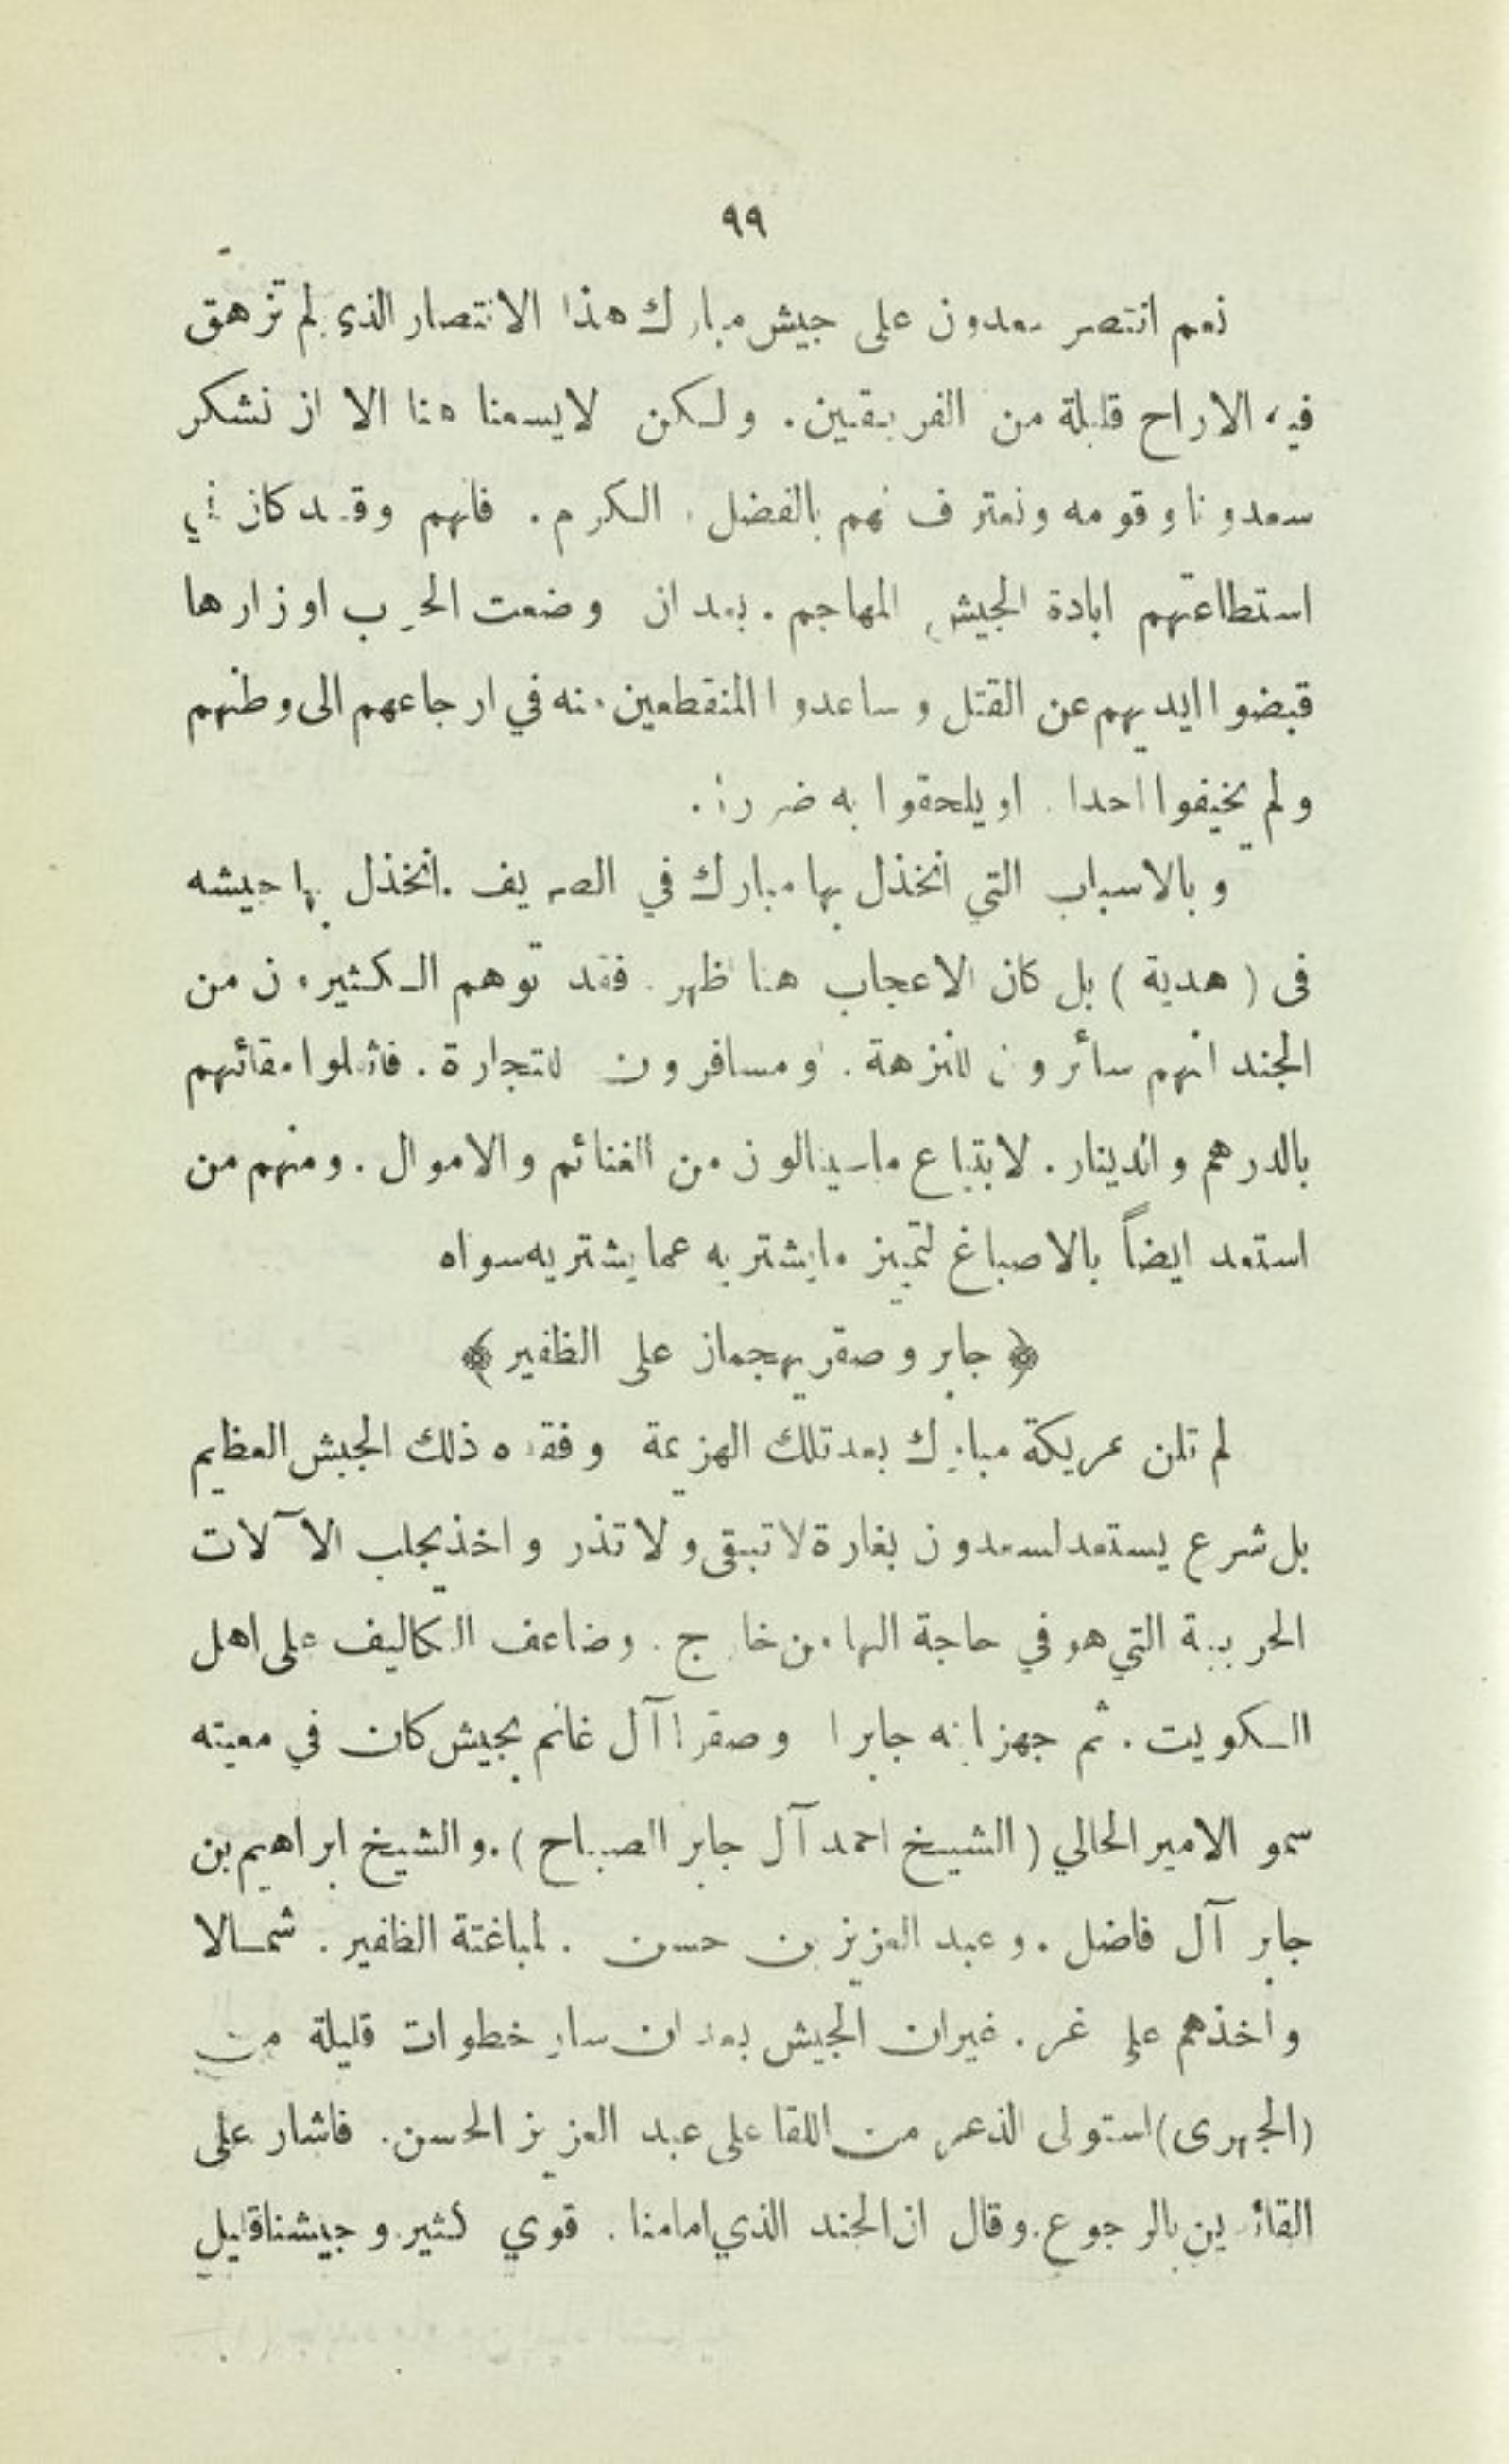 ٩٩
نعم انتصر سعدون على جيش مبارك هذا الانتصار الذي لم تزهق
فيه الاراح قليلة من الفريقين. ولكن لايسعنا هنا الا ان نشكر
سعدونا وقومه ونعترف لهم بالفضل الكرم. فانهم وقد كان في
استطاعتهم ابادة الجيش المهاجم. بعد ان وضعت الحرب اوزارها
قبضوا ايديهم عن القتل وساعدوا المنقطعين منه في ارجاعهم الى وطنهم
ولم يخيفوا احدا. او يلحقوا به ضررا.
وبالاسباب التي انخذل بها مبارك في الصريف. انخذل بها جيشه
فى (هدية) بل كان الاعجاب هنا اظهر. فقد توهم الكثيرون من
الجند انهم سائرون للنزهة. او مسافرون للتجارة. فاثقلوا حقائبهم
بالدرهم والدينار. لابتياع ماسينالون من الغنائم والاموال. ومنهم من
استعد ايضاً بالاصباغ لتمييز مايشتريه عما يشتريه سواه
﴿ جابر وصقر يهجمان على الظفير ﴾
لم تلن عريكة مبارك بعد تلك الهزيمة وفقده ذلك الجيش العظيم
بل شرع يستعد لسعدون بغارة لا تبقى ولا تذر واخذ يجلب الآلات
الحربية التي هو في حاجة اليها من خارج. وضاعف التكاليف على اهل
الكويت. ثم جهز ابنه جابرا وصقرا آل غانم بجيش كان في معيته
سمو الامير الحالي (الشيخ احمد آل جابر الصباح). والشيخ ابراهيم بن
جابر آل فاضل. وعبد العزيز بن حسن. لمباغتة الظفير. شمالا
واخذهم على غر. غيران الجيش بعد ان سار خطوات قليلة من
(الجهرى) استولى الذعر من اللقا على عبد العزيز الحسن. فاشار على
القائدين بالرجوع. وقال ان الجند الذي امامنا. قوي كثير. وجيشنا قليل